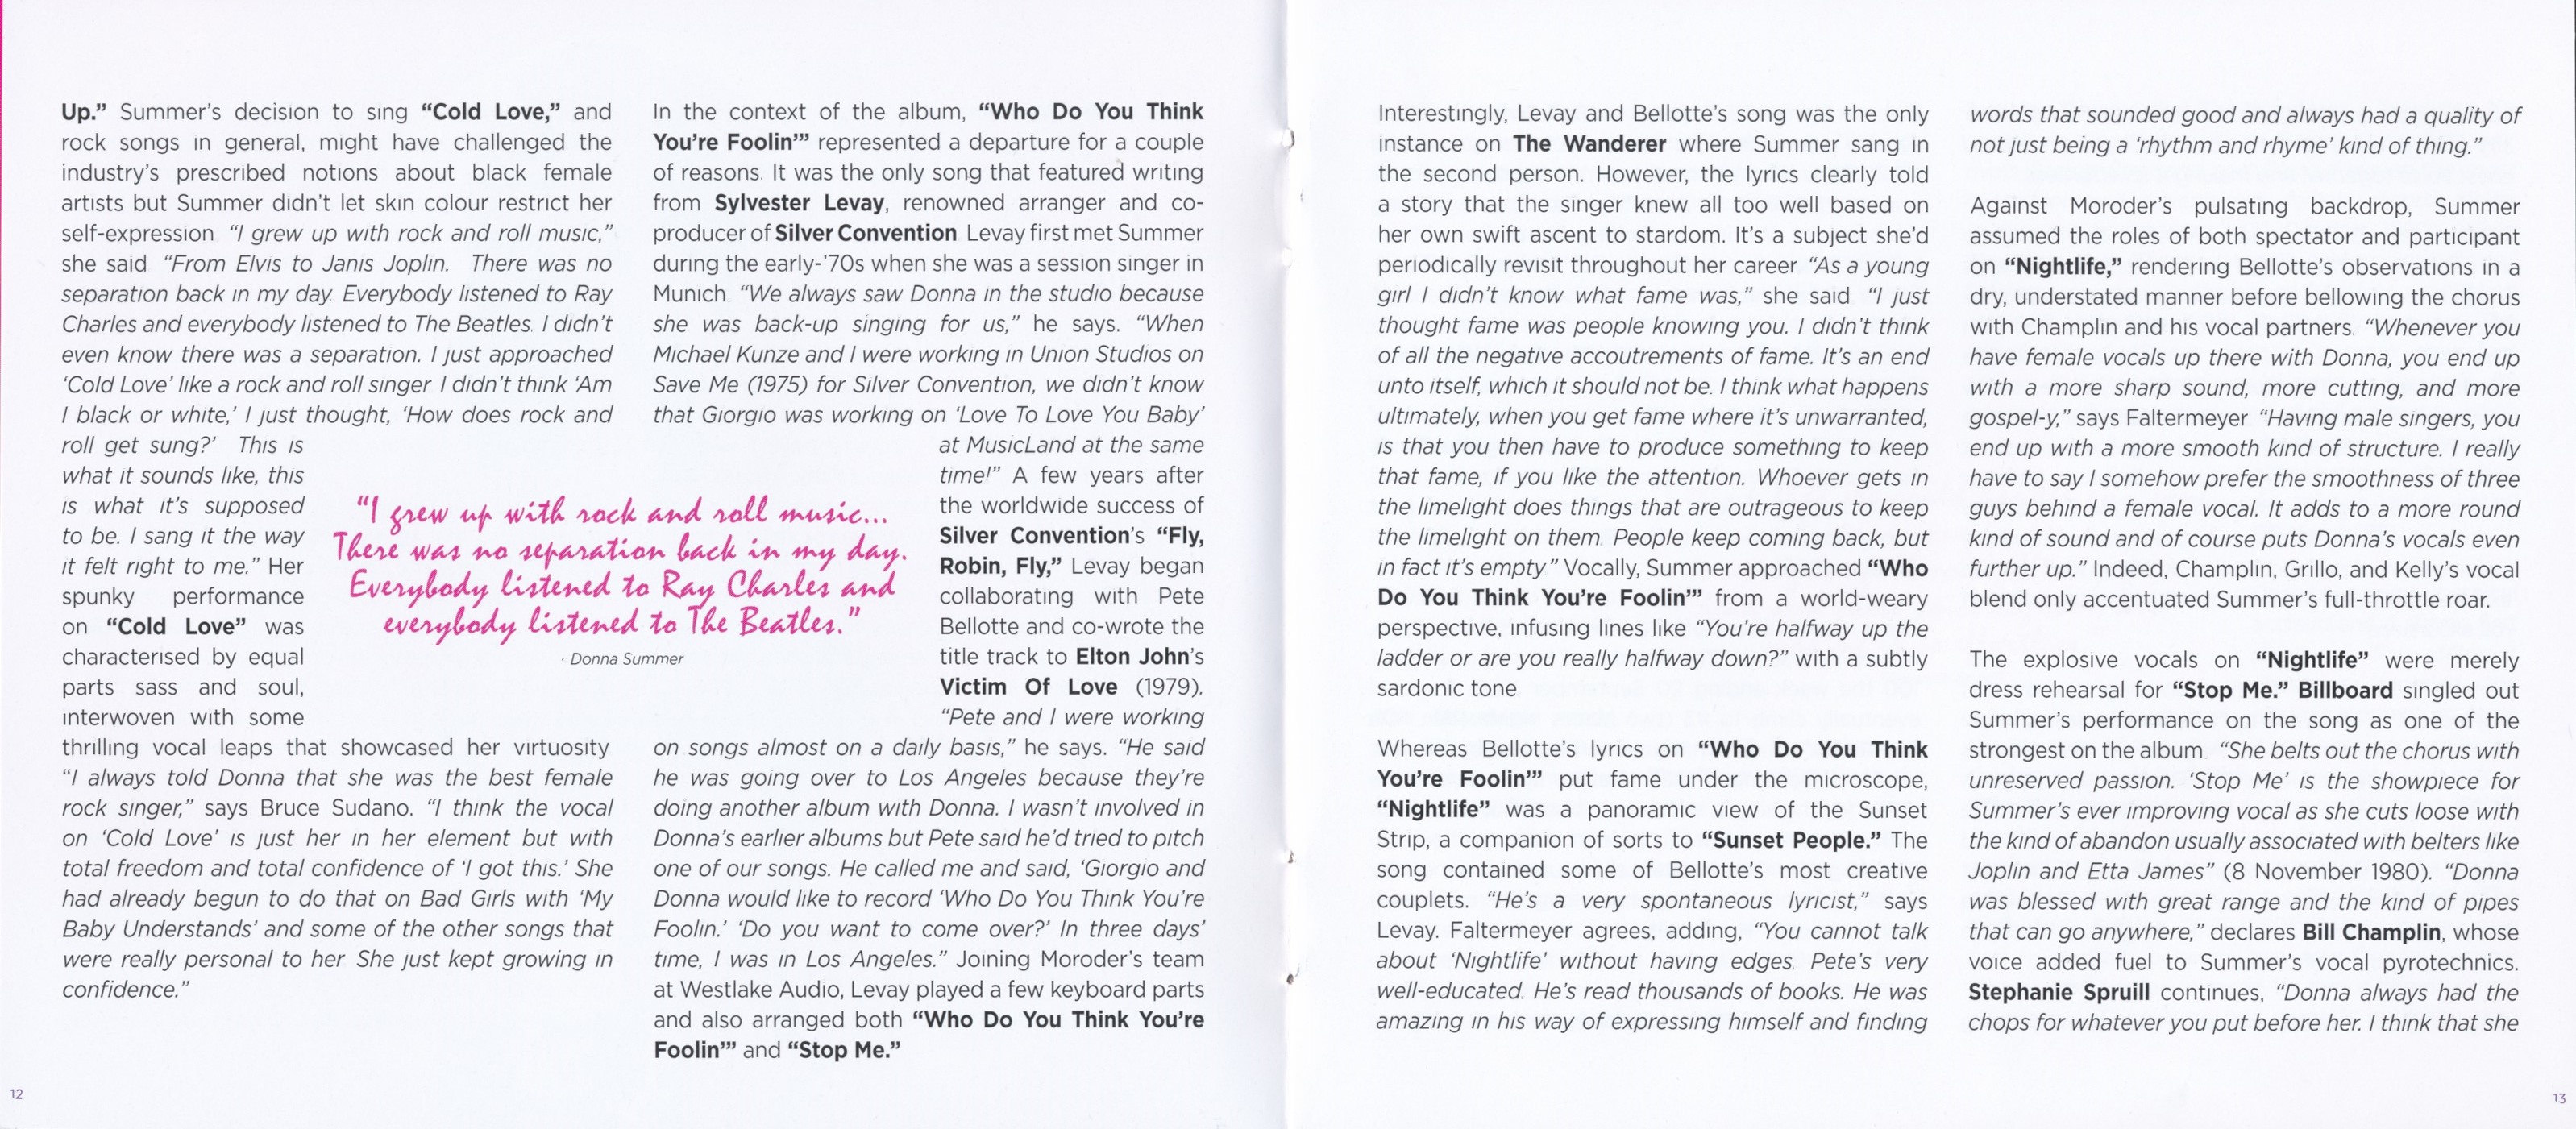 Up.” Summer’s decision to sing “Cold Love,” and
rock songs in general, might have challenged the
industry’s prescribed notions about black female
artists but Summer didn’t let skin colour restrict her
self-expression “I grew up with rock and roll music,”
she said “From Elvis to Janis Joplin. There was no
separation back in my day Everybody listened to Ray
Charles and everybody listened to The Beatles. I didn’t
even know there was a separation. I just approached
‘Cold Love’ like a rock and roll singer I didn’t think ‘Am
I black or white,’ I just thought, ‘How does rock and
roll get sung?’ This is
what it sounds like, this
is what it’s supposed
to be. I sang it the way
it felt right to me.” Her
spunky performance
on “Cold Love” was
characterised by equal
parts sass and soul,
interwoven with some
thrilling vocal leaps that showcased her virtuosity
“I always told Donna that she was the best female
rock singer,” says Bruce Sudano. “I think the vocal
on ‘Cold Love’ is just her in her element but with
total freedom and total confidence of ‘I got this.’ She
had already begun to do that on Bad Girls with ‘My
Baby Understands’ and some of the other songs that
were really personal to her She just kept growing in
confidence.”
“I grew up with rock and roll music...
There was no separation back in my day.
Everybody listened to Ray Charles and
everybody listened to The Beatles.”
- Donna Summer
In the context of the album, “Who Do You Think
You’re Foolin’” represented a departure for a couple
of reasons. It was the only song that featured writing
from Sylvester Levay, renowned arranger and co-
producer of Silver Convention Levay first met Summer
during the early-’70s when she was a session singer in
Munich. “We always saw Donna in the studio because
she was back-up singing for us,” he says. “When
Michael Kunze and I were working in Union Studios on
Save Me (1975) for Silver Convention, we didn’t know
that Giorgio was working on ‘Love To Love You Baby’
at MusicLand at the same
time!” A few years after
the worldwide success of
Silver Convention’s “Fly,
Robin, Fly,” Levay began
collaborating with Pete
Bellotte and co-wrote the
title track to Elton John’s
Victim Of Love (1979).
“Pete and I were working
on songs almost on a daily basis,” he says. “He said
he was going over to Los Angeles because they’re
doing another album with Donna. I wasn’t involved in
Donna’s earlier albums but Pete said he’d tried to pitch
one of our songs. He called me and said, ‘Giorgio and
Donna would like to record ‘Who Do You Think You’re
Foolin.’ ‘Do you want to come over?’ In three days’
time, I was in Los Angeles.” Joining Moroder’s team
at Westlake Audio, Levay played a few keyboard parts
and also arranged both “Who Do You Think You’re
Foolin’” and “Stop Me.”
12
Interestingly, Levay and Bellotte’s song was the only
instance on The Wanderer where Summer sang in
the second person. However, the lyrics clearly told
a story that the singer knew all too well based on
her own swift ascent to stardom. It’s a subject she’d
periodically revisit throughout her career “As a young
girl I didn’t know what fame was,” she said “I just
thought fame was people knowing you. I didn’t think
of all the negative accoutrements of fame. It’s an end
unto itself, which it should not be. I think what happens
ultimately, when you get fame where it’s unwarranted,
is that you then have to produce something to keep
that fame, if you like the attention. Whoever gets in
the limelight does things that are outrageous to keep
the limelight on them People keep coming back, but
in fact it’s empty.” Vocally, Summer approached “Who
Do You Think You’re Foolin’” from a world-weary
perspective, infusing lines like “You’re halfway up the
ladder or are you really halfway down?” with a subtly
sardonic tone
Whereas Bellotte’s lyrics on “Who Do You Think
You’re Foolin’” put fame under the microscope,
“Nightlife” was a panoramic view of the Sunset
Strip, a companion of sorts to “Sunset People.” The
song contained some of Bellotte’s most creative
couplets. “He’s a very spontaneous lyricist,” says
Levay. Faltermeyer agrees, adding, “You cannot talk
about ‘Nightlife’ without having edges. Pete’s very
well-educated. He’s read thousands of books. He was
amazing in his way of expressing himself and finding
words that sounded good and always had a quality of
not just being a ‘rhythm and rhyme’ kind of thing.”
Against Moroder’s pulsating backdrop, Summer
assumed the roles of both spectator and participant
on “Nightlife,” rendering Bellotte’s observations in a
dry, understated manner before bellowing the chorus
with Champlin and his vocal partners. “Whenever you
have female vocals up there with Donna, you end up
with a more sharp sound, more cutting, and more
gospel-y,” says Faltermeyer “Having male singers, you
end up with a more smooth kind of structure. I really
have to say I somehow prefer the smoothness of three
guys behind a female vocal. It adds to a more round
kind of sound and of course puts Donna’s vocals even
further up.” Indeed, Champlin, Grillo, and Kelly’s vocal
blend only accentuated Summer’s full-throttle roar.
The explosive vocals on “Nightlife” were merely
dress rehearsal for “Stop Me.” Billboard singled out
Summer’s performance on the song as one of the
strongest on the album. “She belts out the chorus with
unreserved passion. ‘Stop Me’ is the showpiece for
Summer’s ever improving vocal as she cuts loose with
the kind of abandon usually associated with belters like
Joplin and Etta James” (8 November 1980). “Donna
was blessed with great range and the kind of pipes
that can go anywhere,” declares Bill Champlin, whose
voice added fuel to Summer’s vocal pyrotechnics.
Stephanie Spruill continues, “Donna always had the
chops for whatever you put before her. I think that she
13